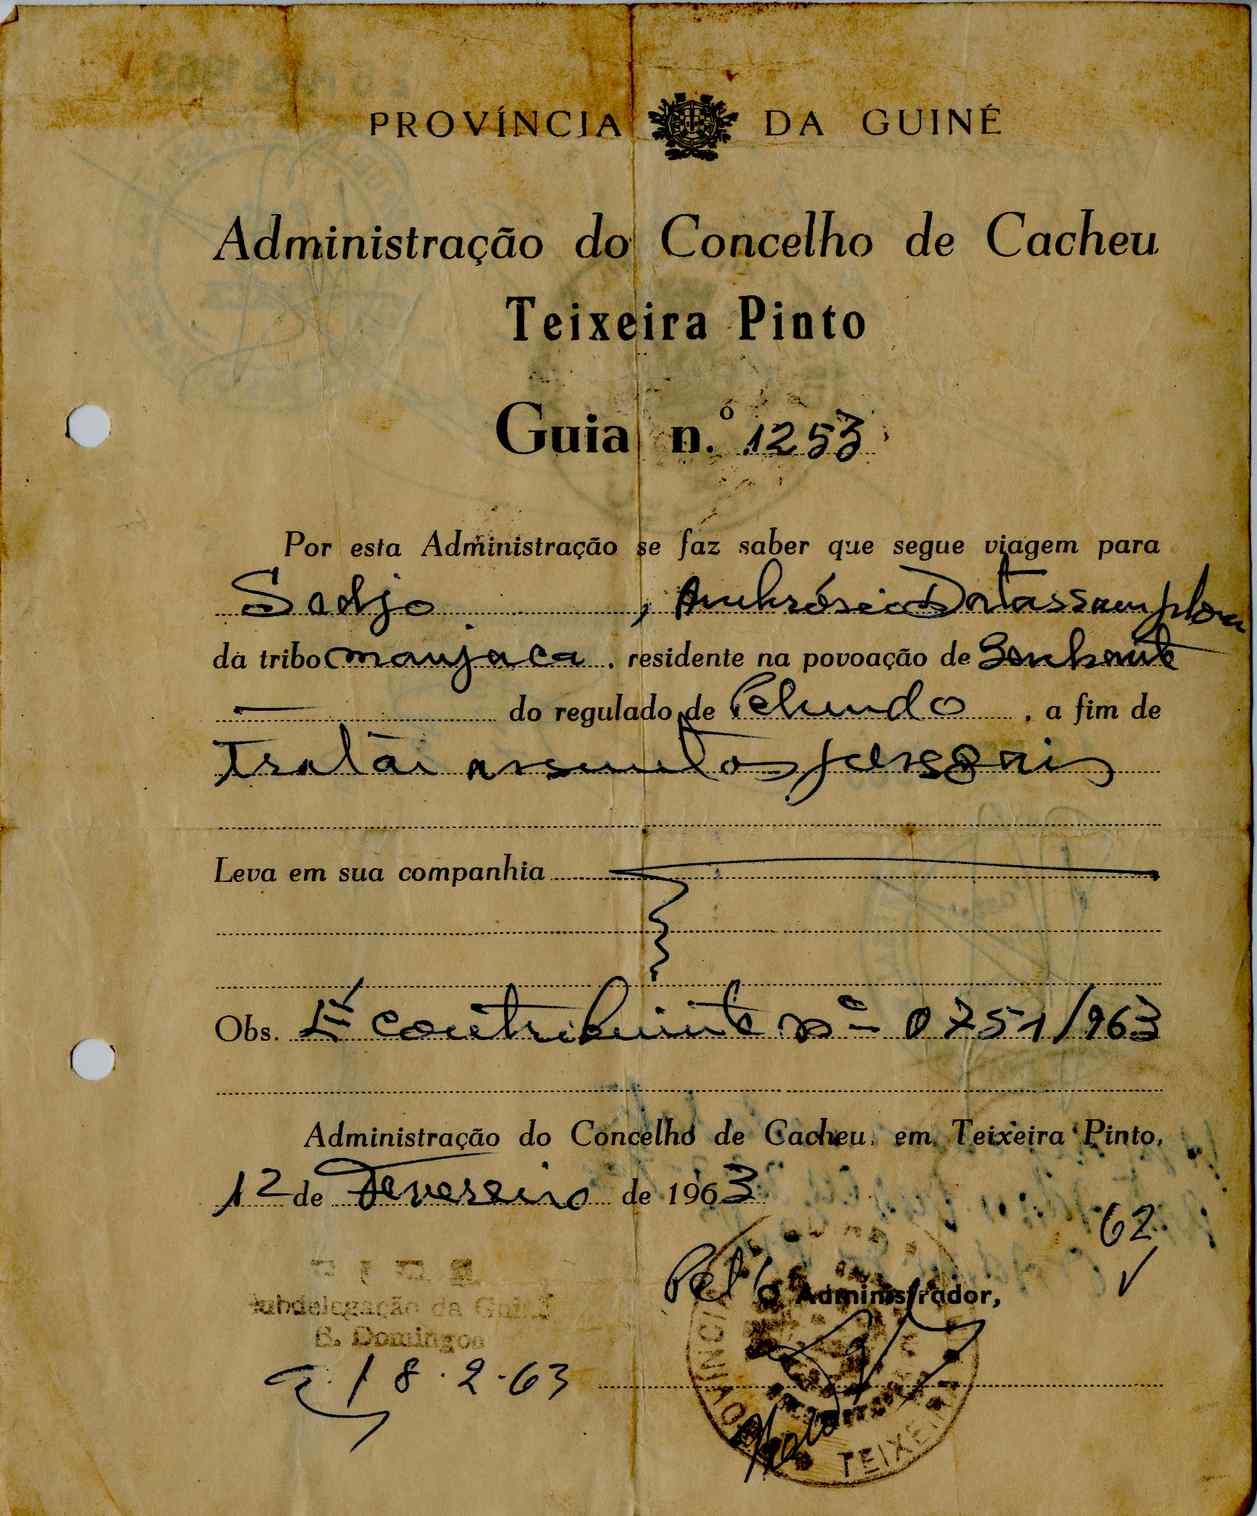 PROVÍNCIA DA GUINÉ
Administração do Concelho de Cacheu
Teixeira Pinto
Guia n.º 1253
Por esta Administração se faz saber que segue viagem para
Sadjo , Ambrósio
da tribo manjaca, residente na povoação de
— do regulado de Pelundo, a fim de
Tratar assuntos pessoais
Leva em sua companhia
Obs. É contribuinte nº 0751/963
Administração do Concelho de Cacheu, em Teixeira Pinto,
12 de Fevereiro de 1963
62
PIDE
Pel' O Administrador,
Subdelegação da Guiné
S. Domingos
18.2.63
PROVÍNCIA
TEIXEIRA